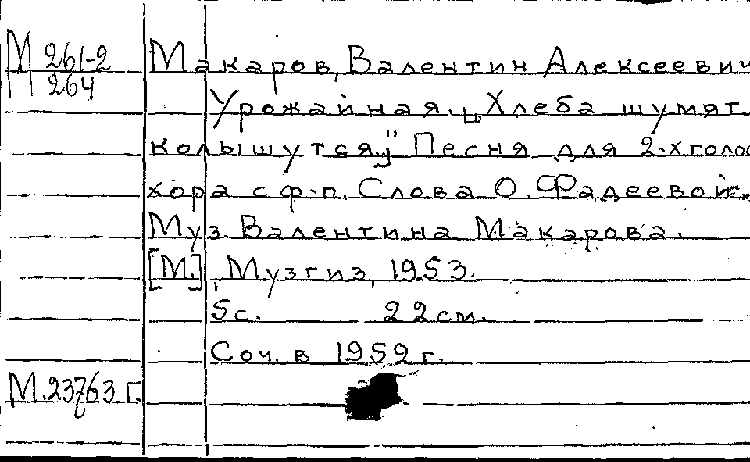 М 261-2
264
Макаров, Валентин Алексеевич
Урожайная. „Хлеба шумят,
колышутся." Песня для 2-х голос
хора с ф-п. Слова О. Фадеевой.
Муз. Валентина Макарова.
[М.], Музгиз, 1953.
5 с. 22 см.
Соч. в 1952 г.
М.23763 Г.